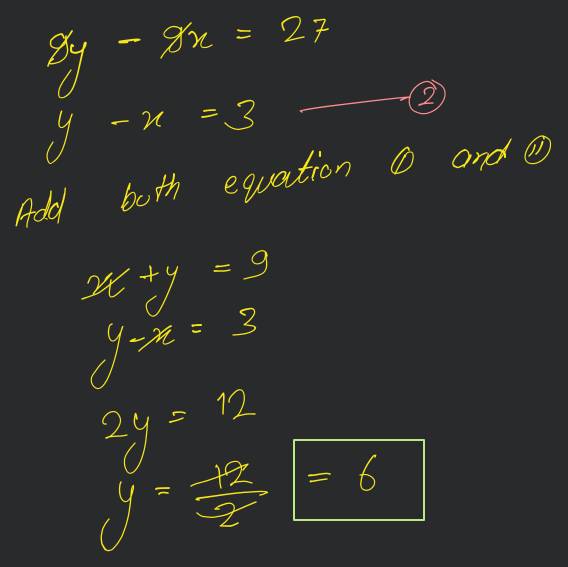 9y - 9x = 27
y - x = 3 ② 
Add both equation ① and ⑪
x + y = 9
y - x = 3
2y = 12
y = 12/2 = 6